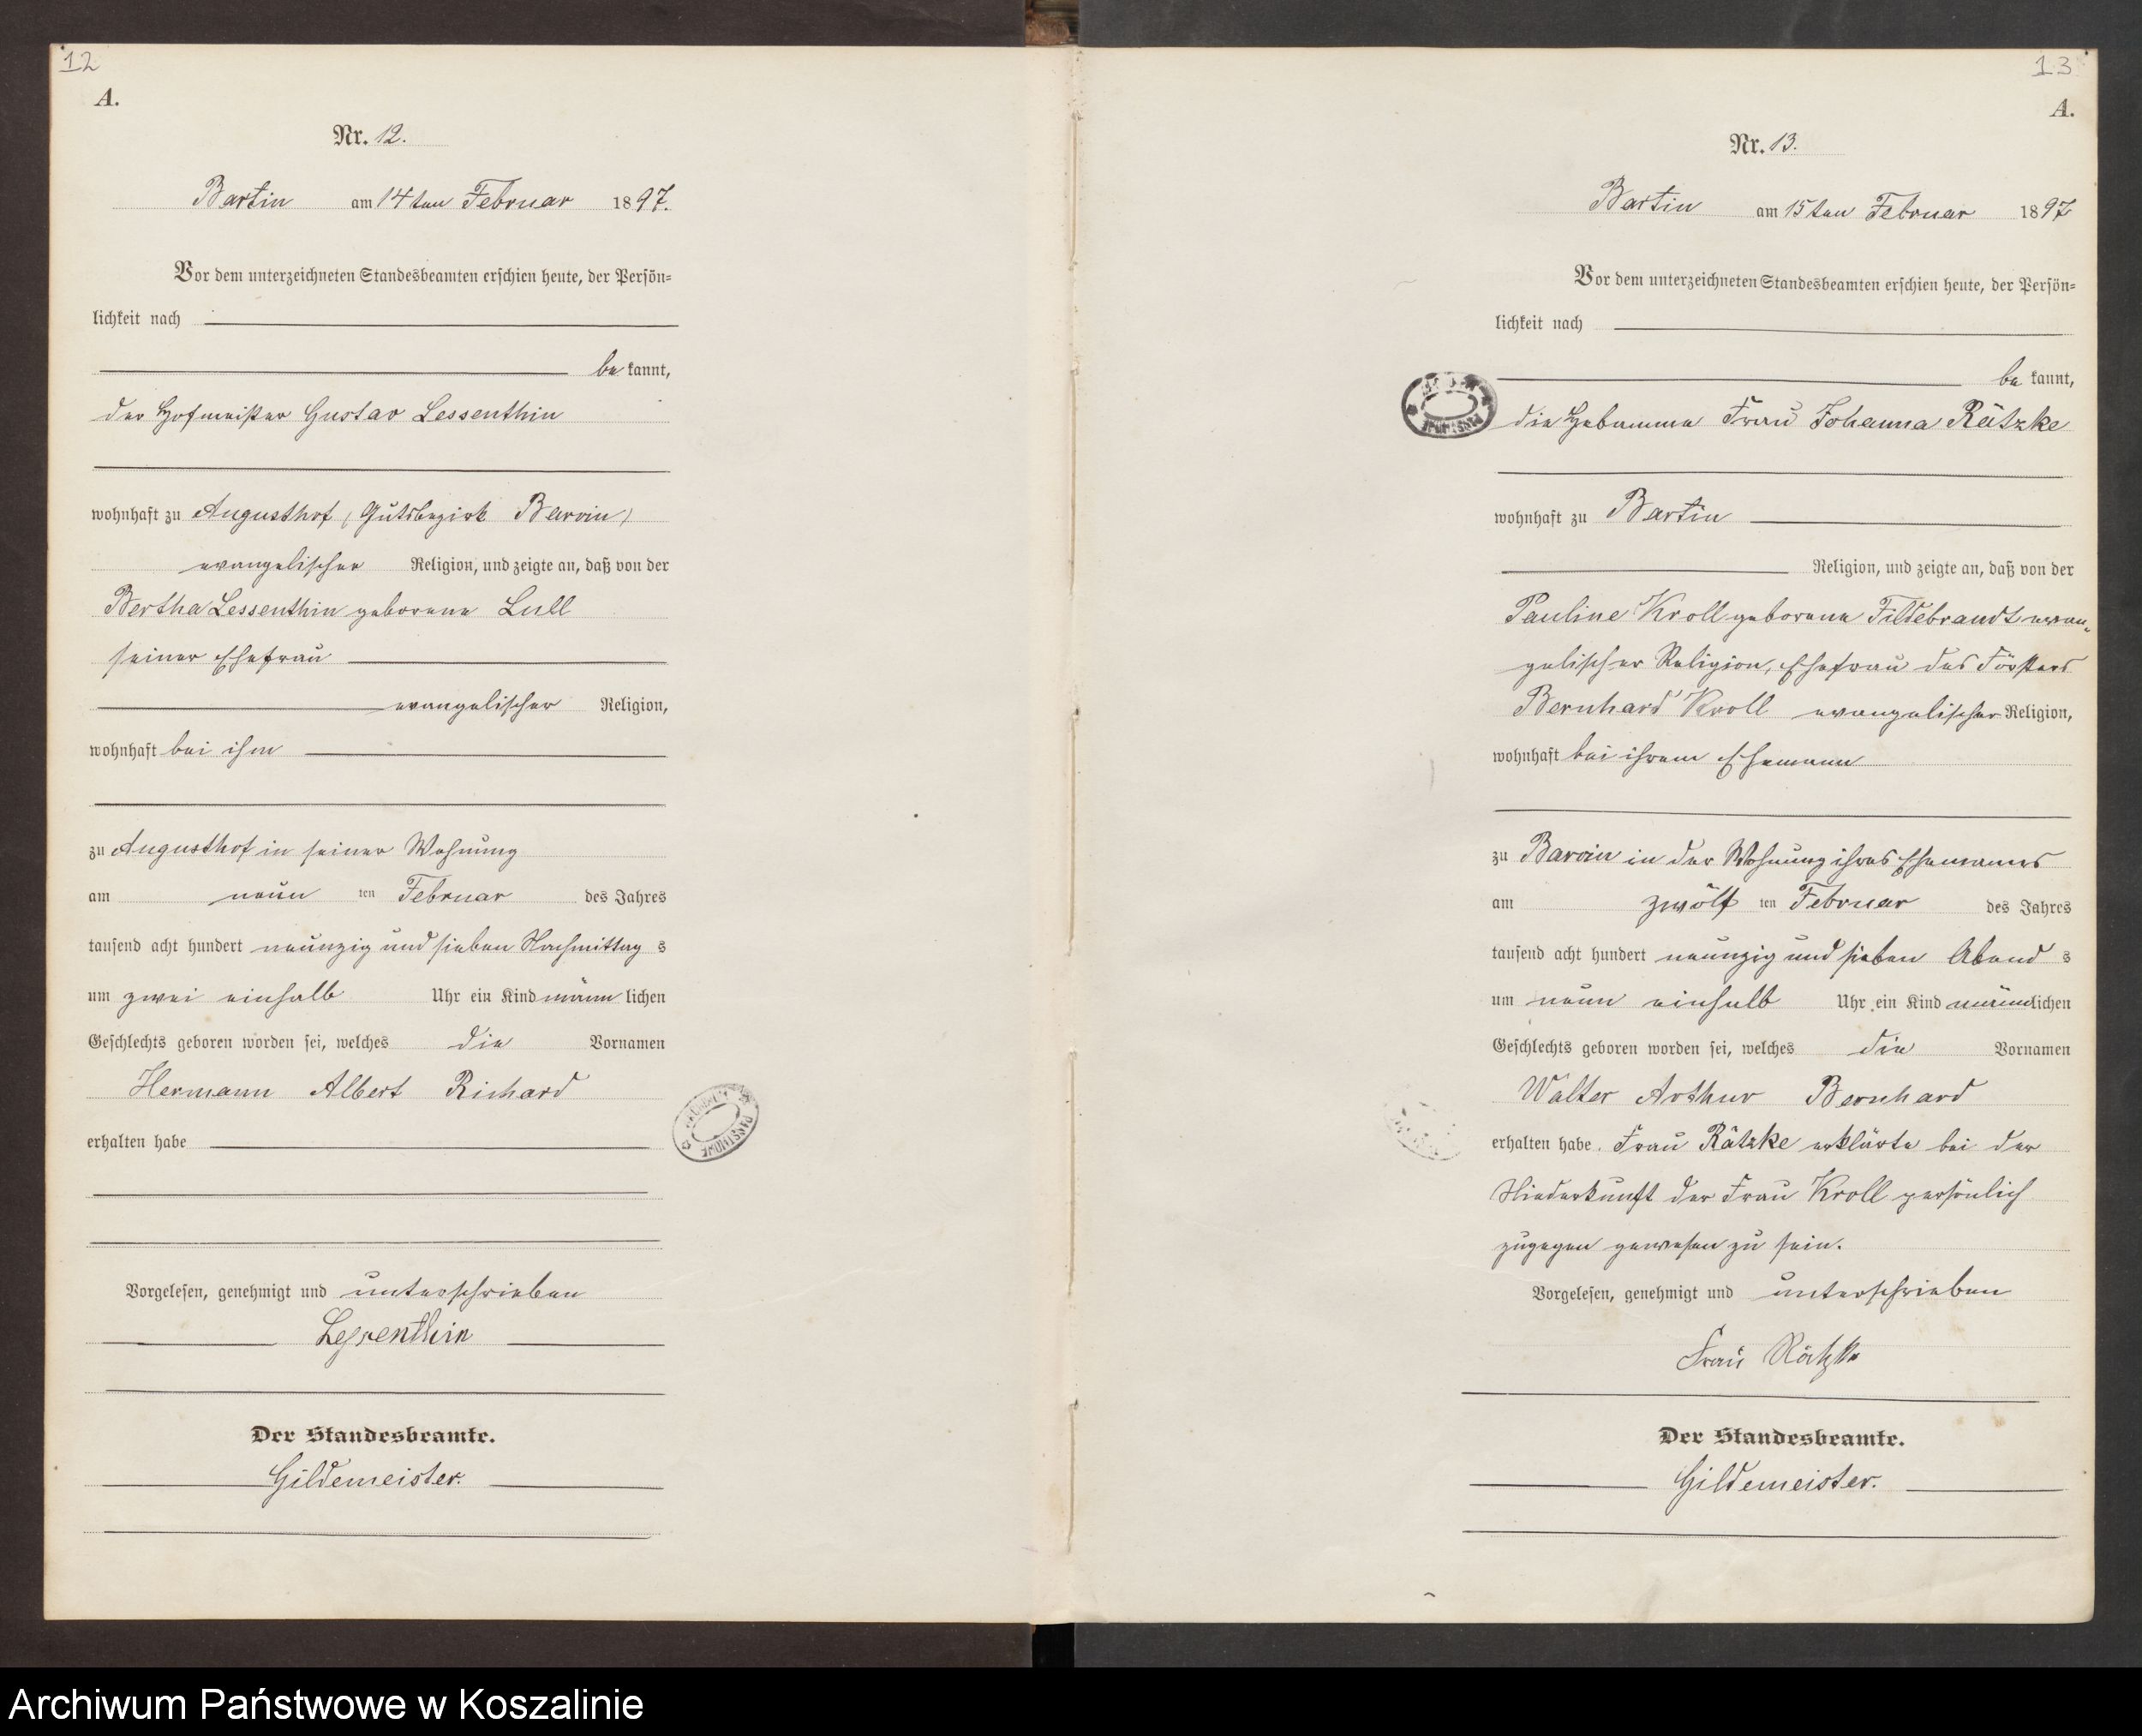 12
A.
Nr. 12.
Bartin am 14ten Februar 1897.
Vor dem unterzeichneten Standesbeamten erschien heute, der Persön=
lichkeit nach
be kannt,
der Hofmeister Gustav Lessenthin
wohnhaft zu Augusthof (Gutsbezirk Barvin)
evangelischer Religion, und zeigte an, daß von der
Bertha Lessenthin geborene Lull
seiner Ehefrau
evangelischer Religion,
wohnhaft bei ihm
zu Augusthof in seiner Wohnung
am neun ten Februar des Jahres
tausend acht hundert neunzig und sieben Nachmittag s
um zwei einhalb Uhr ein Kind männ lichen
Geschlechts geboren worden sei, welches die Vornamen
Hermann Albert Richard
erhalten habe
Vorgelesen, genehmigt und unterschrieben
Lessenthin
Der Standesbeamte.
Gildemeister.
13
A.
Nr. 13.
Bartin am 15ten Februar 1897
Vor dem unterzeichneten Standesbeamten erschien heute, der Persön=
lichkeit nach
be kannt,
die Hebamme Frau Johanna Rätzke
wohnhaft zu Bartin
Religion, und zeigte an, daß von der
Pauline Kroll geborene Fildebrandt evan=
gelischer Religion, Ehefrau des Försters
Bernhard Kroll evangelischer Religion,
wohnhaft bei ihrem Ehemann
zu Barvin in der Wohnung ihres Ehemannes
am zwölf ten Februar des Jahres
tausend acht hundert neunzig und sieben Abend s
um neun einhalb Uhr ein Kind männlichen
Geschlechts geboren worden sei, welches die Vornamen
Walter Arthur Bernhard
erhalten habe. Frau Rätzke erklärte bei der
Niederkunft der Frau Kroll persönlich
zugegen gewesen zu sein.
Vorgelesen, genehmigt und unterschrieben
Frau Rätzke
Der Standesbeamte.
Gildemeister.
Archiwum Państwowe w Koszalinie